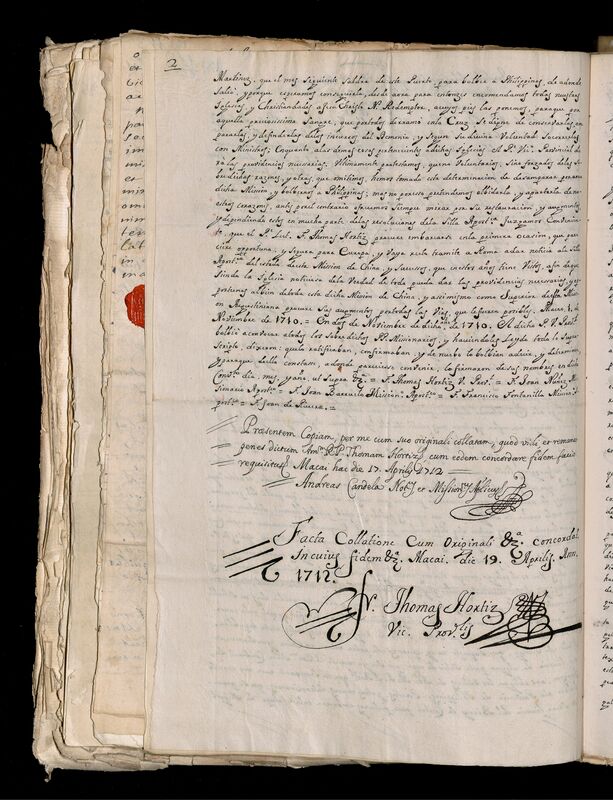 2
Martinez, que el mes siguiente saldra de este Puerto, para bolbèr à Philippinas, de adonde
saliò, y porque esperamos conseguirlo, desde aora para entonzes encomendamos todas nuestras
Iglesias, y Christiandades à Jesu Christo Nrò Redemptor, à cuyos pies las ponemos, para que por
aquella preciosissima Sangre, que por todos derramò en la Cruz, se digne de conservarlas, am
pararlas, y defenderlas de los incursos del Demonio, y segun su divina Voluntad socorrerlas
con Ministros; En quanto à las demas cosas pertenecientes à dichas Iglesias el P. Vic. Provincial da
rà las providencias necesarias. Ultimamente protestamos, que no Voluntarios, sino forzados de las so
bredichas razones, y otras, que omitimos, hemos tomado esta determinacion de desamparar
dicha Mission, y bolbernos à Philippinas; mas no por esso pretendemos olbidarla, y apartarla de nu
estros corazones, antes por el contrario ofrecemos siempre mirar por su restauracion, y augmento,
y dependiendo estos en mucha parte de las resoluciones de la Silla Apost.ca Juzgamos Convenien
te, que el P. Lect. F. Thomas Hortiz procure embarcarse en la primera ocasion, que pare
ciere opportuna, y segura para Europa, y Vaya recta tramite à Roma à dar noticia à la Silla
Apost.ca del estado de esta Mission de China, y Sucessos, que en estos años tiene Vistos, para que
la Iglesia noticiosa de la Verdad de todo pueda dar las providencias necesarias, y op
portunas al bien de toda esta dicha Mission de China, y assimismo como Superior de esta Mis
sion Augustiniana procure sus augmentos por todas las Vias, que le fueren posibles. Macao, y
Noviembre de 1710. = En dos de Noviembre de dicho año de 1710. El dicho P. V. Prov.l
bolbiò à convocar à todos los Sobredichos PP. Missionarios, y haviendoles Leydo todo lo Supra
Scripto, dixeron: que lo ratificaban, confirmaban, y de nuebo lo bolbian à decir, y determinar,
y para que de ello constasse, adonde pareciesse convenir, lo firmaron de sus nombres en dicho
Conv.to dia, mes, y año, ut Supra &a. = F. Thomas Hortiz V. Prov.l = F. Juan Nuñez Mi
sionario Apost.co = F. Joan Barruelo Mission.o Apost.co = F. Francisco Fontanilla Mission.o A
post.co = F. Joan de Rivera. =
Præsentem Copiam, per me cum suo originali collatam, quod vidit et remane
penes dictum Am. R. P. Thomam Hortiz, cum eodem concordare fidem facio
requisitus Macai hac die 17. Aprilis 1712
Andreas Candela Not.s et Mission.s Apölicus
Facta Collatione Cum Originali &a. concordat.
In cuius fidem &a. Macai. die 19. Aprilis. Ann.
1712.
Fr. Thomas Hortiz
Vic. Prov.lis